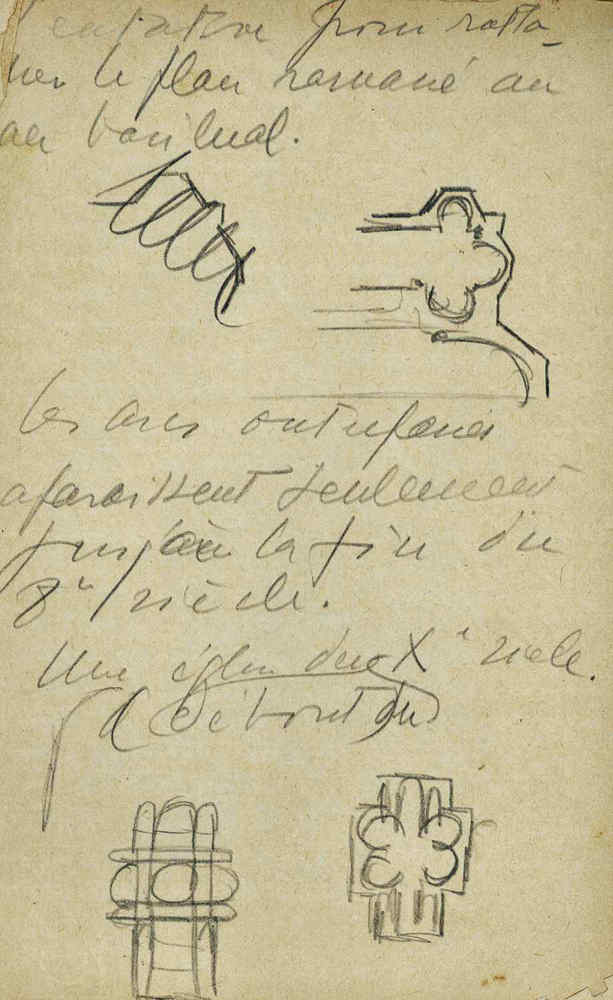 pour ratta-
cher le plan romané au
an basilical.
Les arcs outrepassés
aparaissent seulement
jusqu'à la fin du
8e siècle.
Une église du X e siècle.